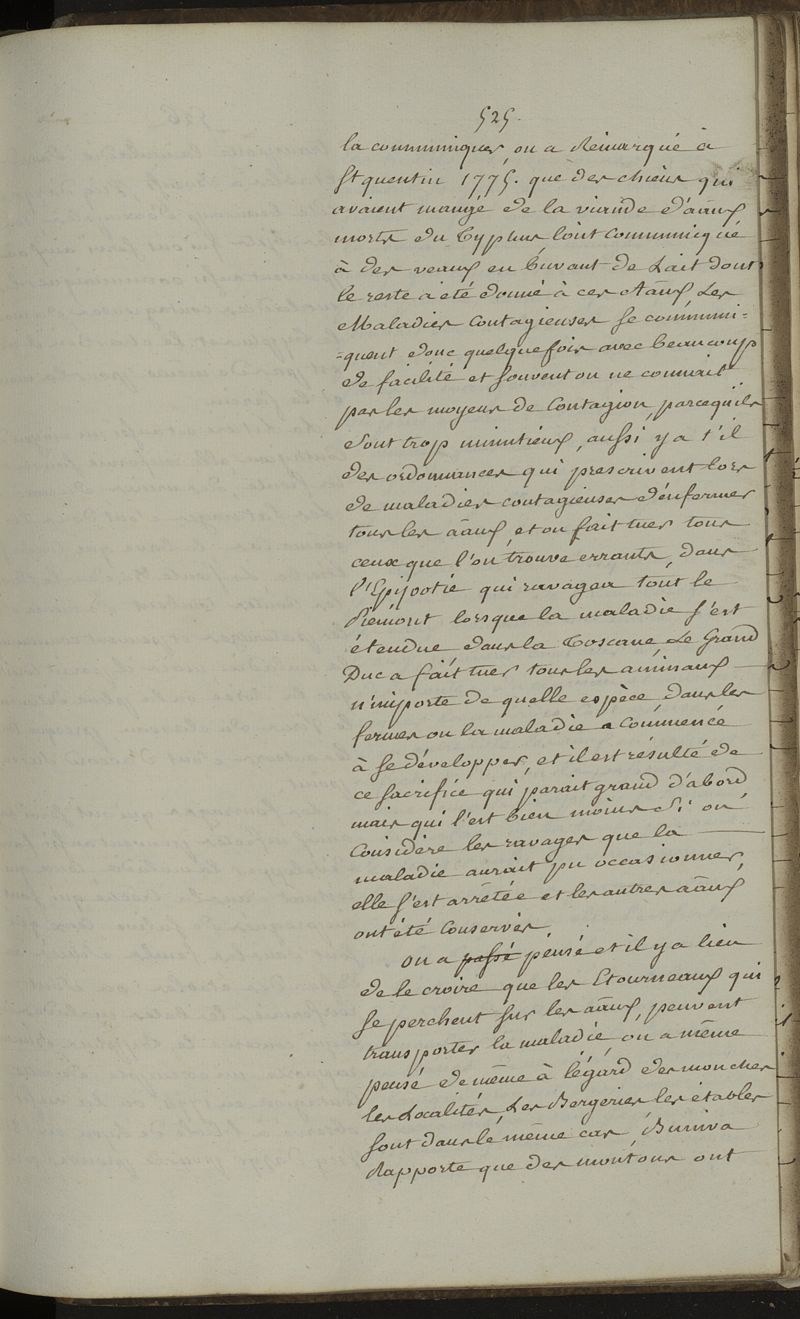 525.
la communiquer, on a Rémarqué à
St quentin 1775. que des chiens qui
avaient mangé de la viande d'aāux
morts du Typhus l'ont communiqué
à des veaux en buvant de Lait dont
le reste a été donné à ces Aāux. Les
Maladies Contagieuses se communi=
=quent donc quelquefois avec beaucoup
de facilité et souvent on ne connait
pas les moyens de Contagion, parcequ'ils
sont trop minutieux, aussi y a t'il
des ordonnances qui prescrivent lors
de maladies contagieuses d'énfermer
tous les aāux, et on fait tuer tous
ceux que l'on trouve errants, dans
l'Epizootie qui ravagea tout le
Piémont lorsque la maladie s'est
étendue dans la Toscane, Le Grand
Duc a fait tuer tous les animaux —
n'importe de quelle espèce, dans les
fermes ou la maladie a Commencé
à se développer, et il est résulté de
ce sacrifice qui parait grand d'abord
mais qui l'est bien moins Si on
Considère les ravages que la —
maladie aurait pu occasionner,
elle s'est arrêtée et les autres aāux
ont été Conservés.
On a passé pensé et il y a lieu
de le croire que les Etourneaux qui
se perchent sur les aāux, peuvent
transporter la maladie, on a même
pensé de même à l'égard des mouches
les Localités, Les Bergeries, les étables
sont dans le même cas, Buniva
Rapporte que des moutons ont